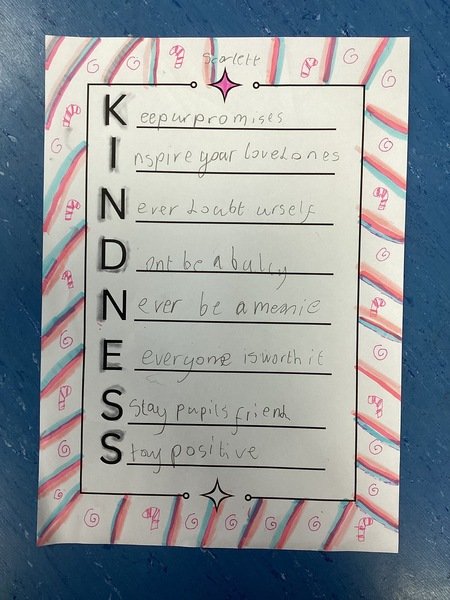 Scarlett
K eepurpromises
I nspire your lovedones
N ever doubt urself
D ont be a bully
N ever be a meanie
E everyone isworth it
S Stay pupils friend
S tay positive